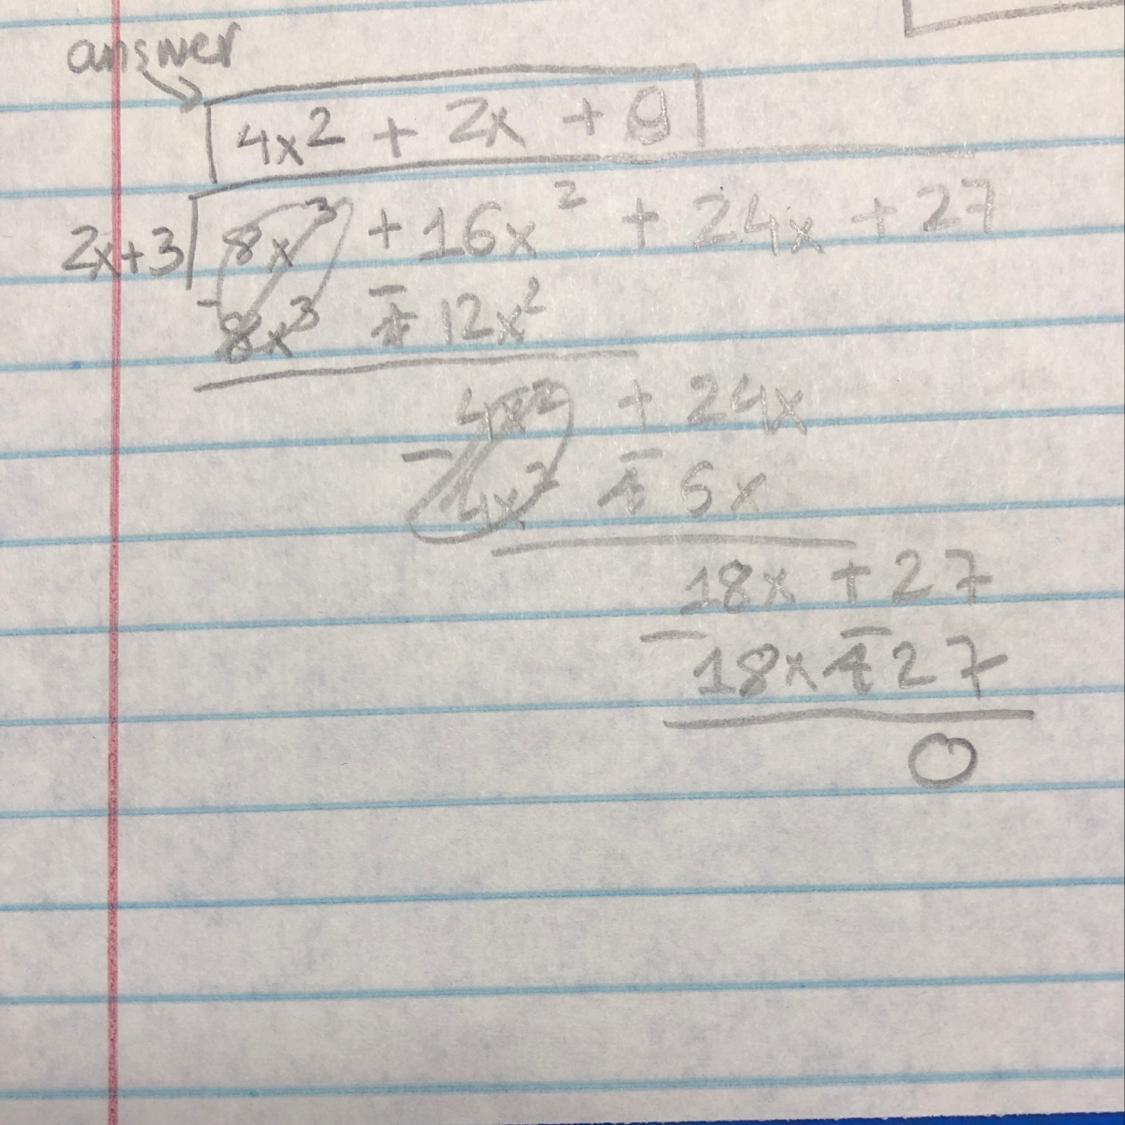 answer
4x² + 2x + 9
2x+3 8x³ + 16x² + 24x + 27
- 8x³ - + 12x²
4x² + 24x
- 4x² - + 6x
18x + 27
- 18x - + 27
0